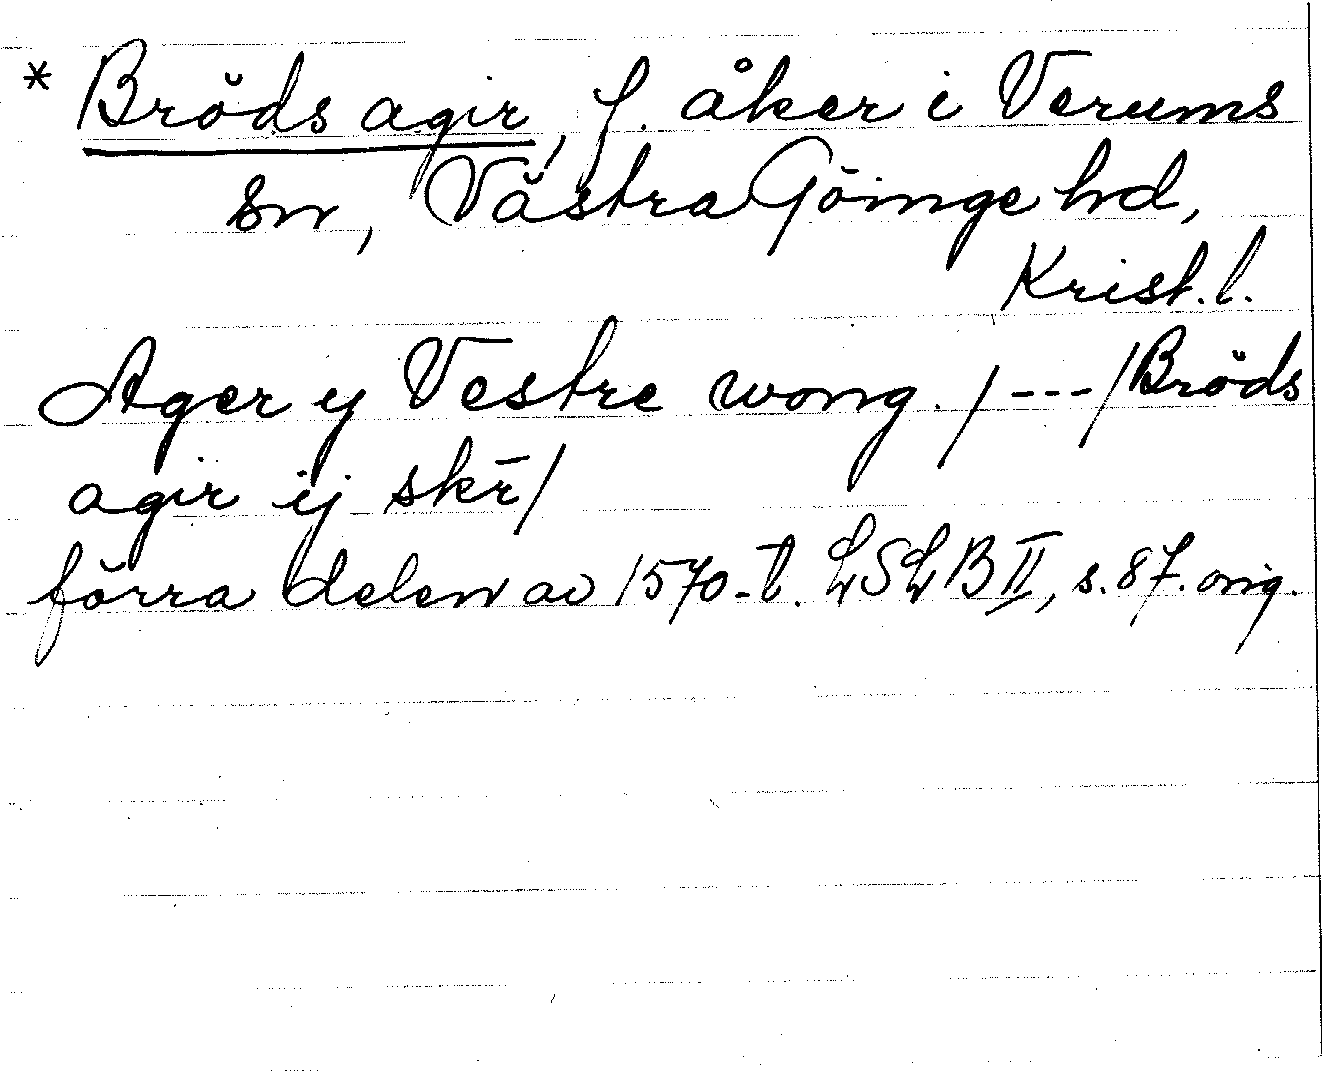 * Bröds agir, f. åker i Verums
sn, Västra Göinge hd,
Krist. l.
Ager y Vestre wong. /---/ Bröds
agir ij skr̄/
förra delen av 1570-t. LSLB II, s. 87. orig.